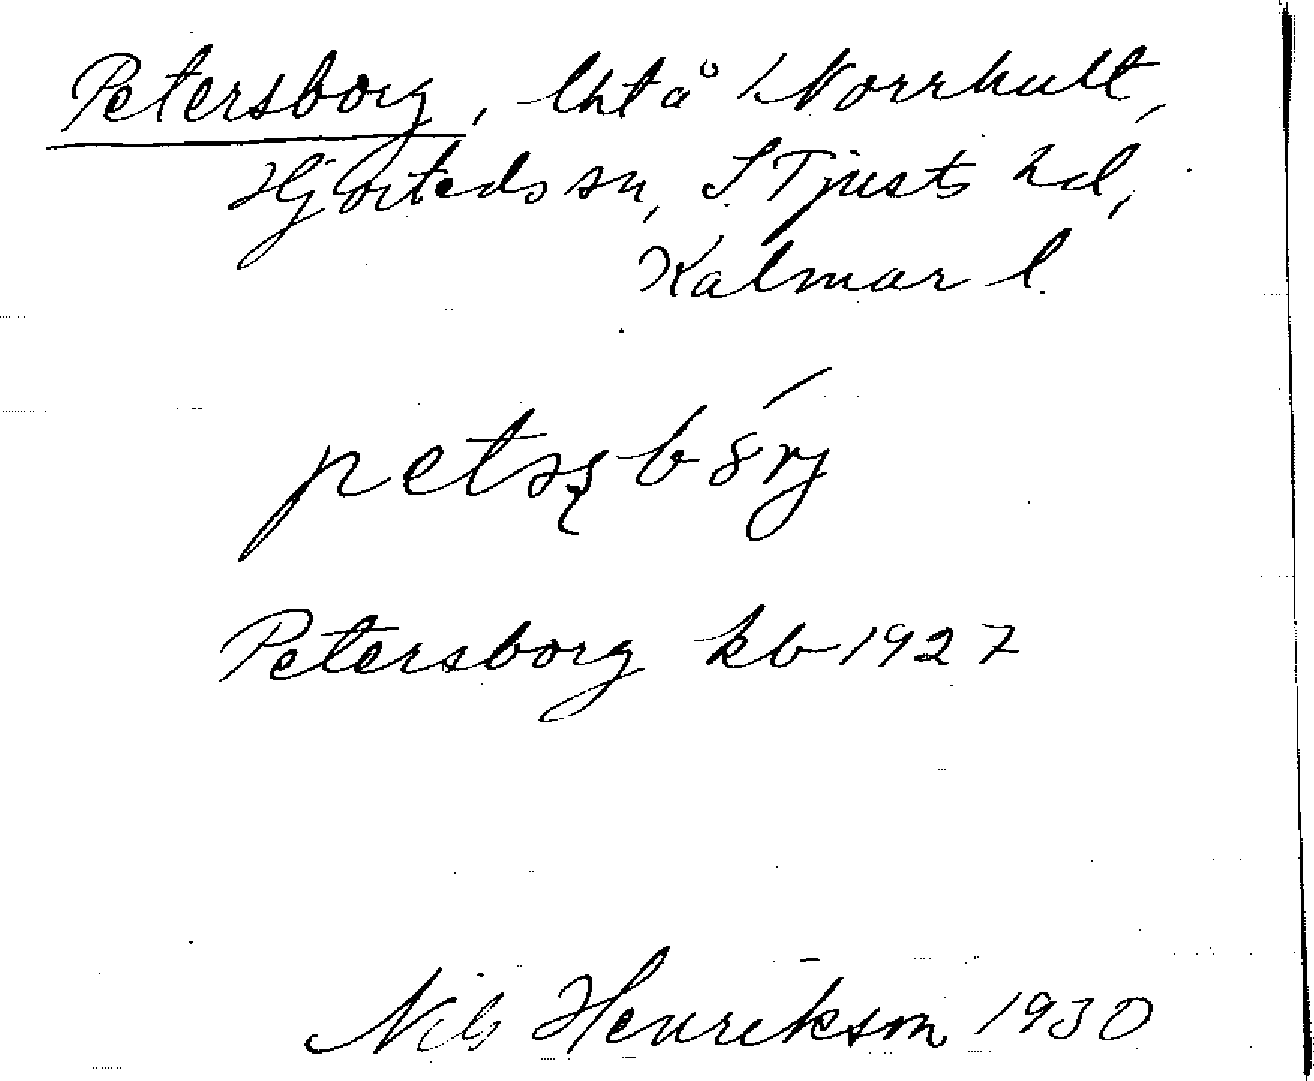 Petersborg, lht å Norrhult,
Hjorteds sn, S. Tjusts hd,
Kalmar l.
Petersborg kb 1927
Nils Henrikson 1930